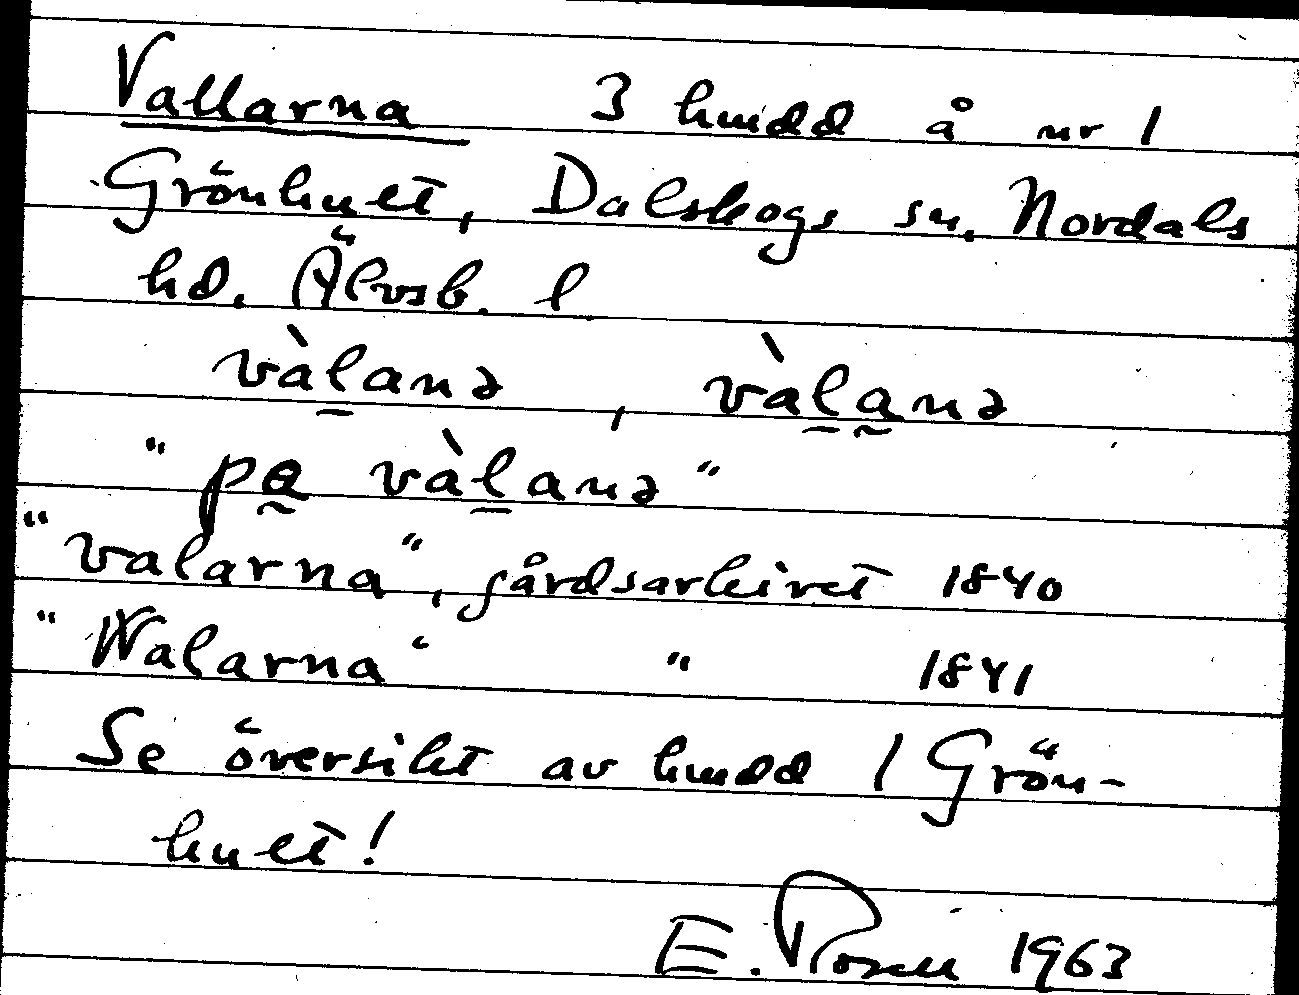 Vallarna 3 hmdd å nr 1
Grönhult, Dalskogs sn. Nordals
hd. Älvsb. l
và̱lanə, và̱la̰nə
"pa̰ và̱lanə"
"Valarna", gårdsarkivet 1840
"Walarna" " 1841
Se översikt av hmdd 1 Grön-
hult!
E. Rosell 1963